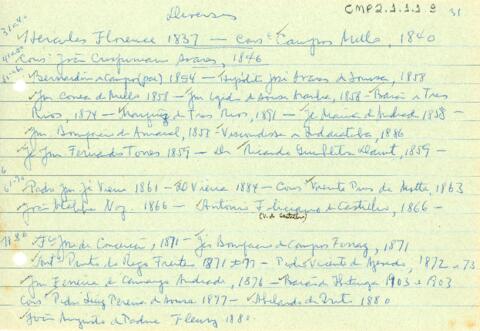 Diversos
CMP2.1.1.1 9
31
Hercules Florence 1837 — Cons Campos Mello, 1840
Cons João Crispiniano Soares, 1846
Bernardino Campos (pai) 1854 — Hipólito José Soares de Sousa, 1858
Jm Correa de Mello 1858 — Jm Egidio de Sousa Aranha, 1858 — Barão de Tres
Rios, 1874 — Marquez de Tres Rios, 1891 — Je Maria de Andrade 1858 —
Jm. Bonifacio do Amaral, 1858 — Viscondessa de Indaiatuba, 1886
Je Jm Fernandes Torres 1859 — Dr Ricardo Gumbleton Daunt, 1859 —
Pedro Jm Jé Vieira 1861 — Vieira 1884 — Cons Vicente Pires da Motta, 1863
João 1866 — Antonio Feliciano de Castilho, 1866 —
(V. de Castilho)
Fco Jm da Conceição, 1871 — Jé Bonifacio de Campos Ferraz, 1871
Antº Pinto do Rego Freitas 1871 e 77 — Pedro Vicente de Azevedo, 1872 e 73
Jm Ferreira de Camargo Andrade, 1876 — Barão de Ibitinga 1903 e 1903
Cons Pedro Luiz Pereira de Sousa 1877 — Abelardo de Brito 1880
João Augusto de Padua Fleury 1880.